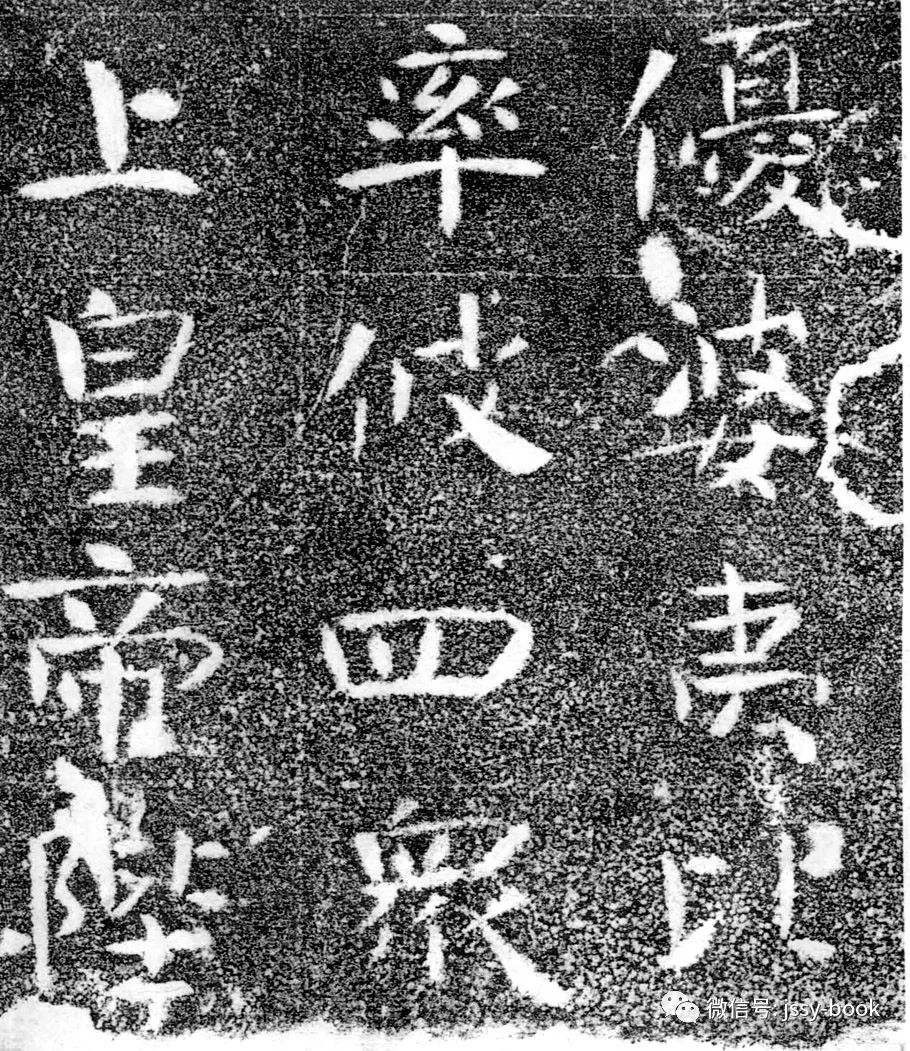 優婆夷比
率彼四眾
上皇帝陛
微信号: jssy-book